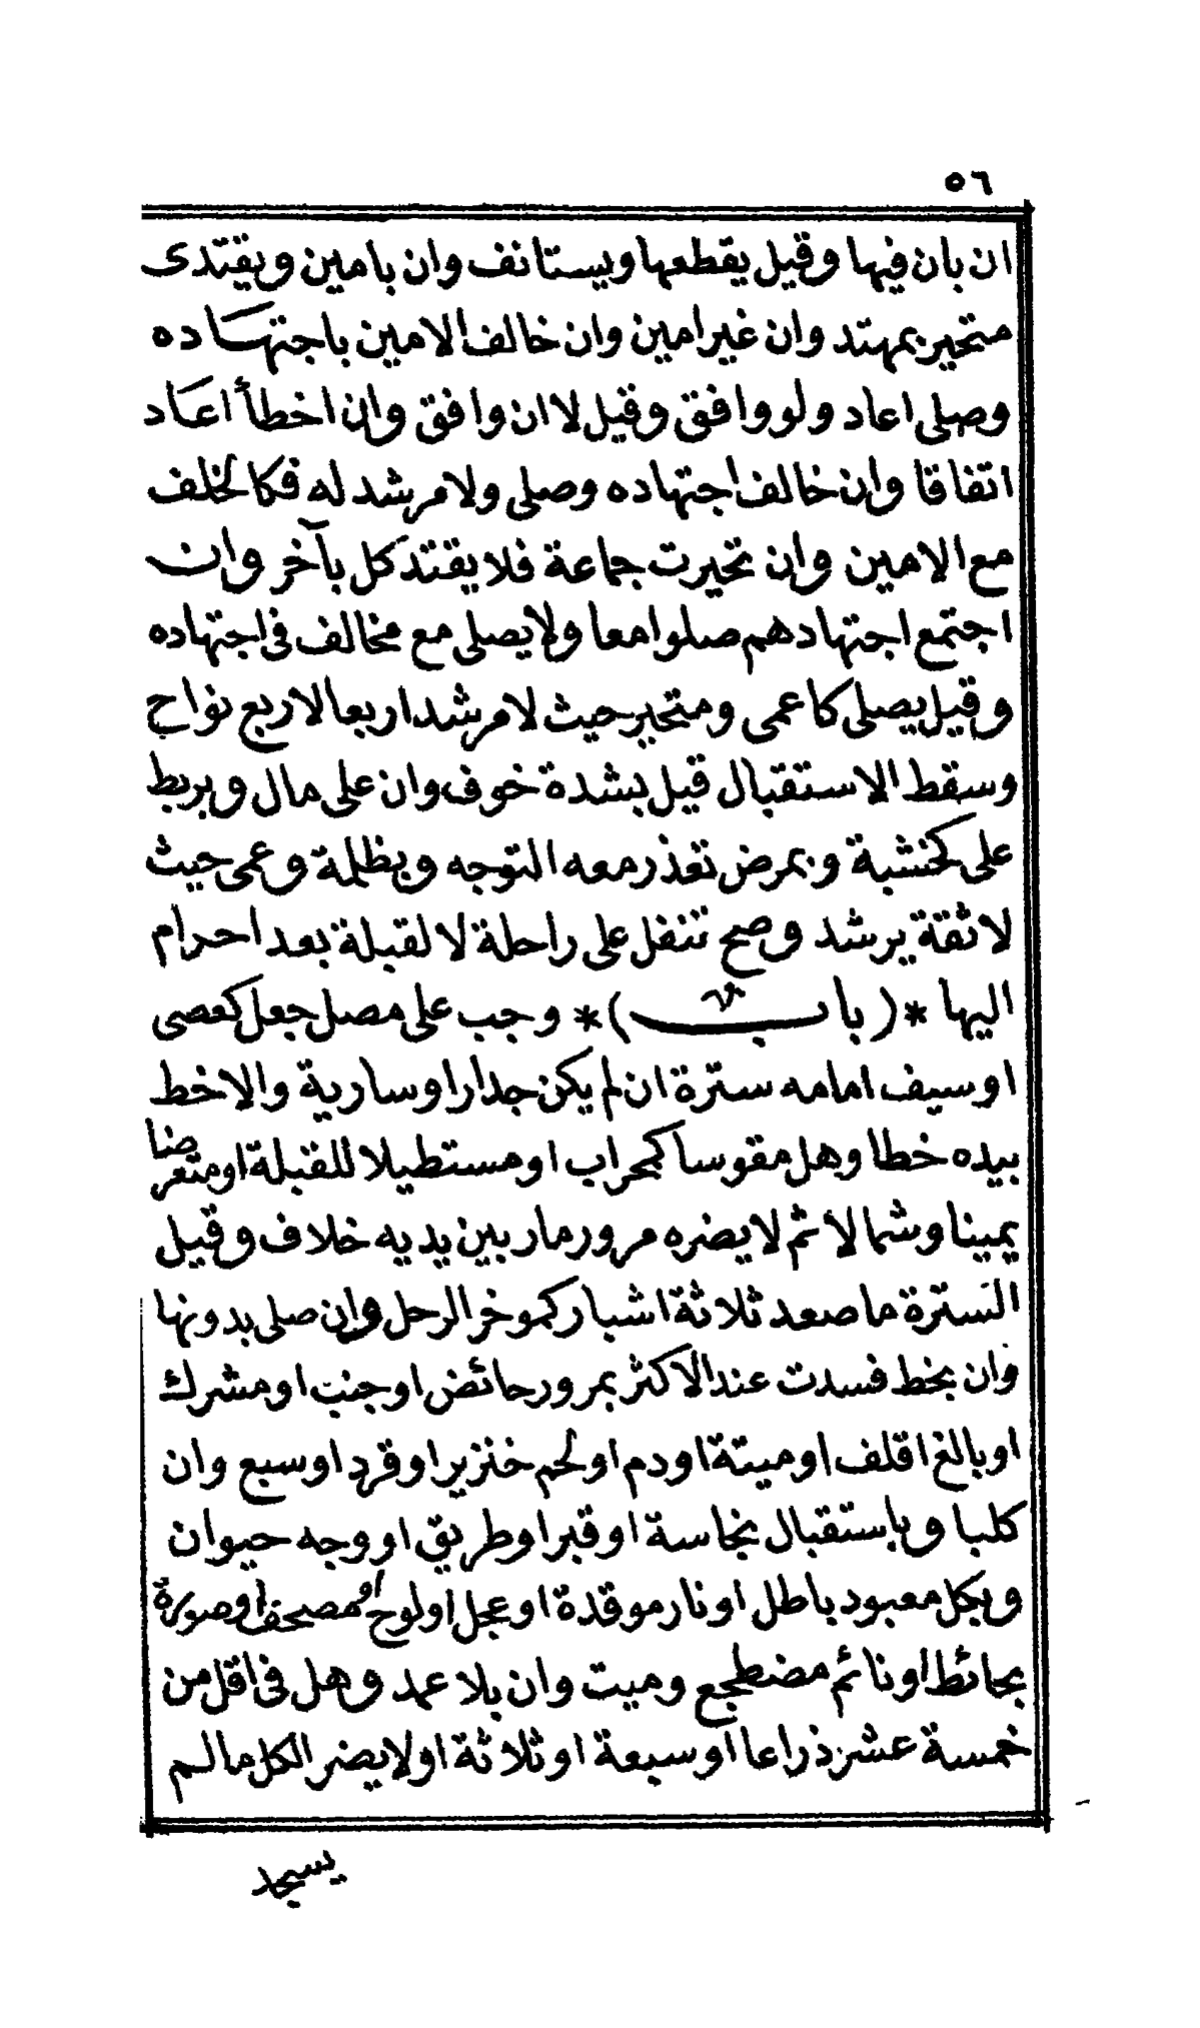 ٥٦
ان بان فيها وقيل يقطعها ويستانف وان بامين ويقتدى
متحير بمهتد وان غير امين وان خالف الامين باجتهاده
وصلى اعاد ولو وافق وقيل لا ان وافق وان اخطأ اعاد
اتفاقا وان خالف اجتهاده وصلى ولا مرشد له فكالخلف
مع الامين وان تحيرت جماعة فلا يقتد كل بآخر وان
اجتمع اجتهادهم صلوا معا ولا يصلى مع مخالف فى اجتهاده
وقيل يصلى كاعمى ومتحير حيث لا مرشد اربعا لاربع نواح
وسقط الاستقبال قيل بشدة خوف وان على مال وبربط
على كخشبة وبمرض تعذر معه التوجه وبظلمة وعمى حيث
لا ثقة يرشد وصح تنفل على راحلة لا لقبلة بعد احرام
اليها *( باب )* وجب على مصل جعل كعصى
او سيف امامه سترة ان لم يكن جدارا او سارية والا خط
بيده خطا وهل مقوسا كمحراب او مستطيلا للقبلة او متعرضا
يمينا وشمالا ثم لا يضره مرور مار بين يديه خلاف وقيل
السترة ما صعد ثلاثة اشبار كموخر الرحل وان صلى بدونها
وان بخط فسدت عند الاكثر بمرور حائض او جنب او مشرك
او بالغ اقلف او ميتة او دم او لحم خنزير او قرد او سبع وان
كلبا وباستقبال نجاسة او قبر او طريق او وجه حيوان
وبكل معبود باطل او نار موقدة او عجل او لوح او مصحف او صورة
بحائط او نائم مضطجع وميت وان بلا عمد وهل فى اقل من
خمسة عشر ذراعا او سبعة او ثلاثة او لا يضر الكل ما لم
يسجد